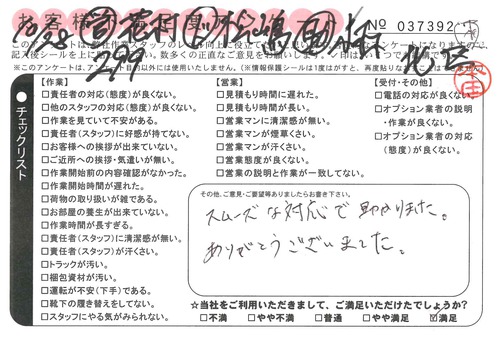 お客様
№ 037392
10/28
299
チェックリスト
【作業】
□責任者の対応(態度)が良くない。
□他のスタッフの対応(態度)が良くない。
□作業を見ていて不安がある。
□責任者(スタッフ)に好感が持てない。
□お客様への挨拶が出来ていない。
□ご近所への挨拶・気遣いが無い。
□作業開始前の内容確認がなかった。
□作業開始時間が遅れた。
□荷物の取り扱いが雑である。
□お部屋の養生が出来ていない。
□作業時間が長すぎる。
□責任者(スタッフ)に清潔感が無い。
□責任者(スタッフ)が汗くさい。
□トラックが汚い。
□梱包資材が汚い。
□運転が不安(下手)である。
□靴下の履き替えをしてない。
□スタッフにやる気がみられない。
【営業】
□見積もり時間に遅れた。
□見積もり時間が長い。
□営業マンに清潔感が無い。
□営業マンが煙草くさい。
□営業マンが汗くさい。
□営業態度が良くない。
□営業の説明と作業が一致してない。
【受付・その他】
□電話の対応が良くない。
□オプション業者の説明
・作業が良くない。
□オプション業者の対応
(態度)が良くない。
その他、ご意見・ご要望等ありましたらお書き下さい。
スムーズな対応で助かりました。
ありがとうございました。
☆当社をご利用いただきまして、ご満足いただけたでしょうか?
□不満 □やや不満 □普通 □やや満足 ☑満足